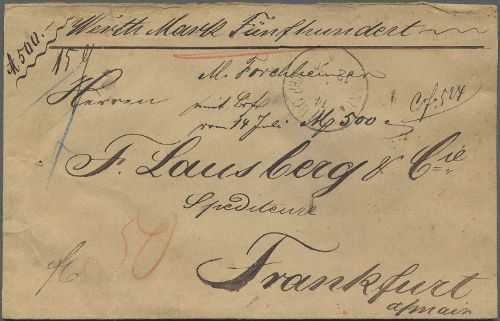 M 500.
Werth Mark Fünfhundert
15 g
M. Forchheimer
Herren
mit Brf
vom 14 Juli M 500
F. Lausberg & Cie
Spediteure
50
Frankfurt
a/main